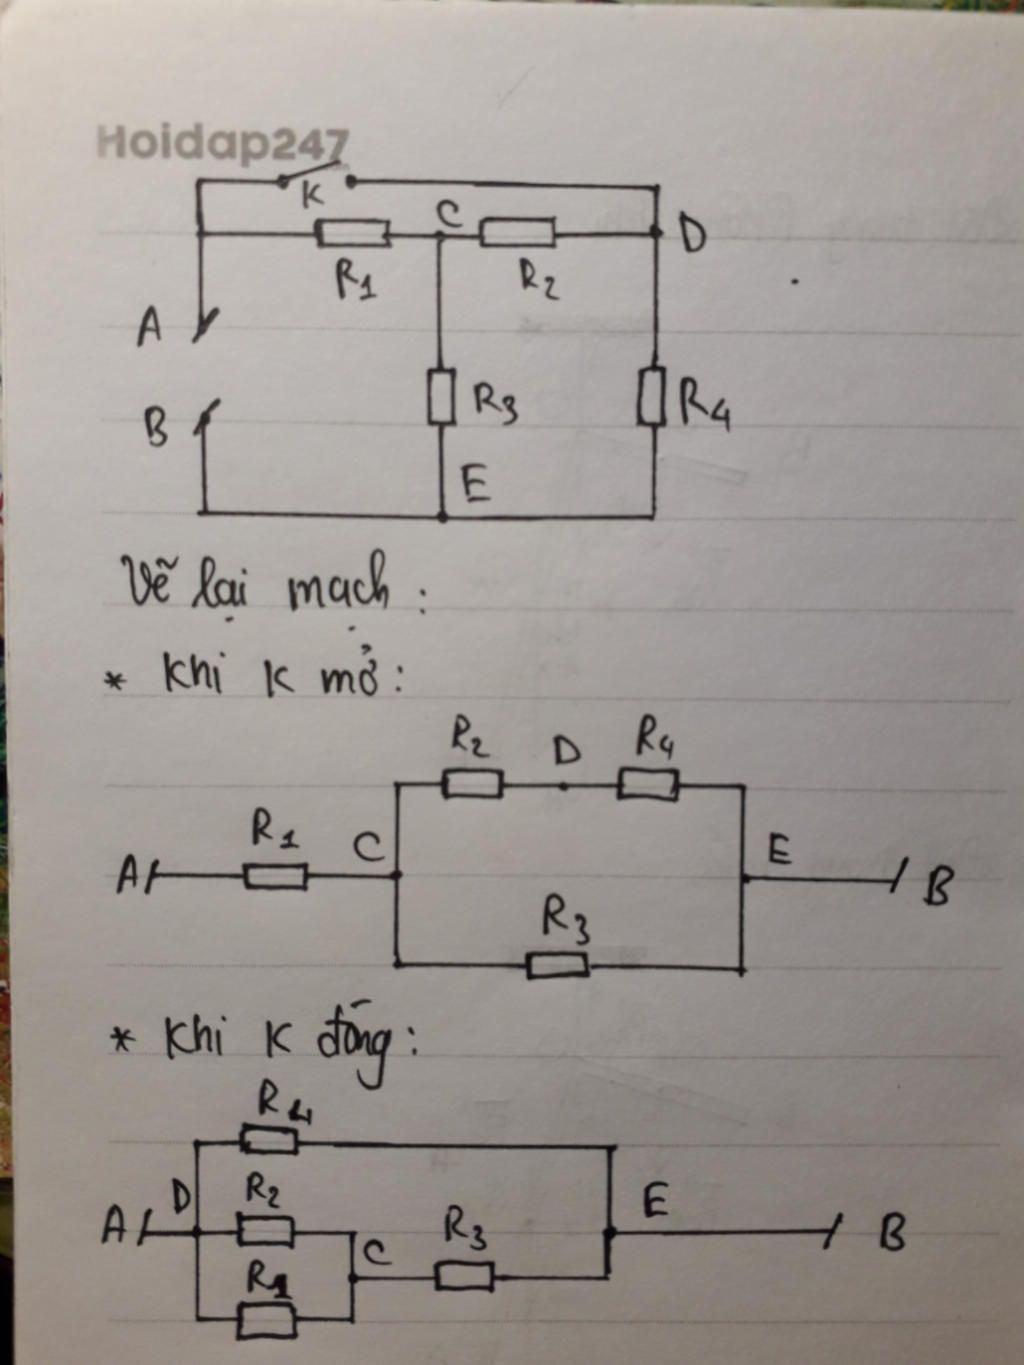 Hoidap247
K
C
D
R1
R2
A
R3
R4
B
E
Vẽ lại mạch :
* Khi K mở :
R2 D R4
R1 C E
A B
R3
* Khi K đóng :
R4
D R2 E
A R3 B
C
R1